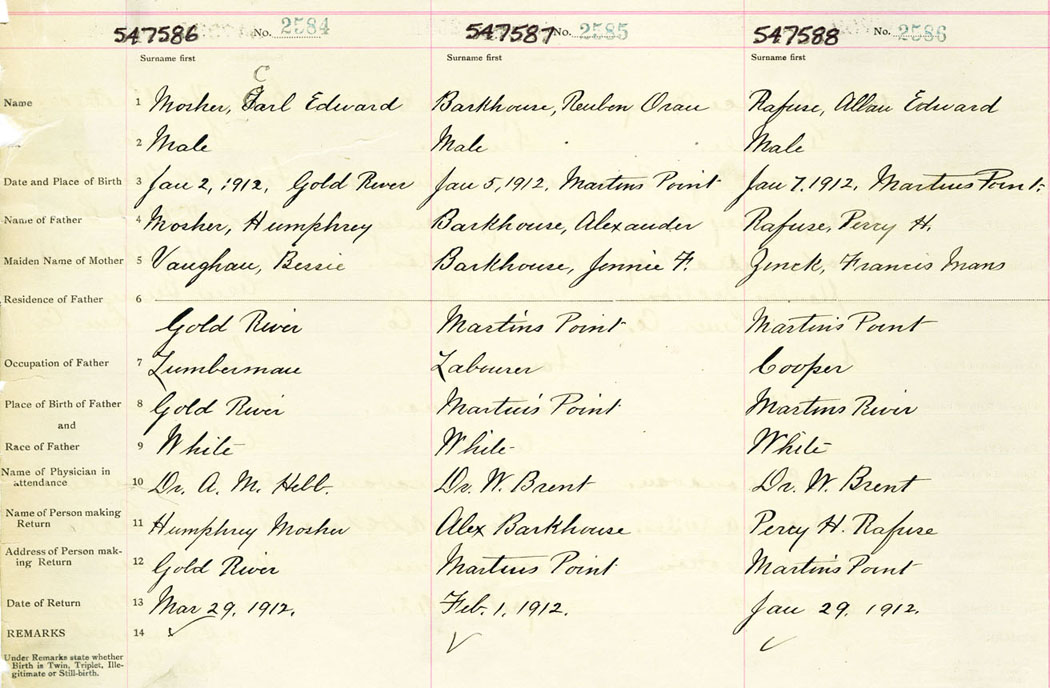 547586 No. 2584 547587 No. 2585 547588 No. 2586
Surname first Surname first Surname first
C
Name 1 Mosher, Earl Edward Barkhouse, Reuben Oran Rafuse, Allan Edward
2 Male Male Male
Date and Place of Birth 3 Jan 2, 1912, Gold River Jan 5, 1912, Martins Point Jan 7, 1912, Martins Point
Name of Father 4 Mosher, Humphrey Barkhouse, Alexander Rafuse, Percy H.
Maiden Name of Mother 5 Vaughan, Bessie Barkhouse, Jennie F. Zinck, Francis
Residence of Father 6
Gold River Martins Point Martins Point
Occupation of Father 7 Lumberman Labourer Cooper
Place of Birth of Father 8 Gold River Martin's Point Martins River
and
Race of Father 9 White White White
Name of Physician in
attendance 10 Dr. A. M. Hebb. Dr. W. Brent Dr. W. Brent
Name of Person making
Return 11 Humphrey Mosher Alex Barkhouse Percy H. Rafuse
Address of Person mak-
ing Return 12 Gold River Martins Point Martins Point
Date of Return 13 Mar 29, 1912. Feb. 1, 1912. Jan 29, 1912.
REMARKS 14
Under Remarks state whether
Birth is Twin, Triplet, Ille-
gitimate or Still-birth.